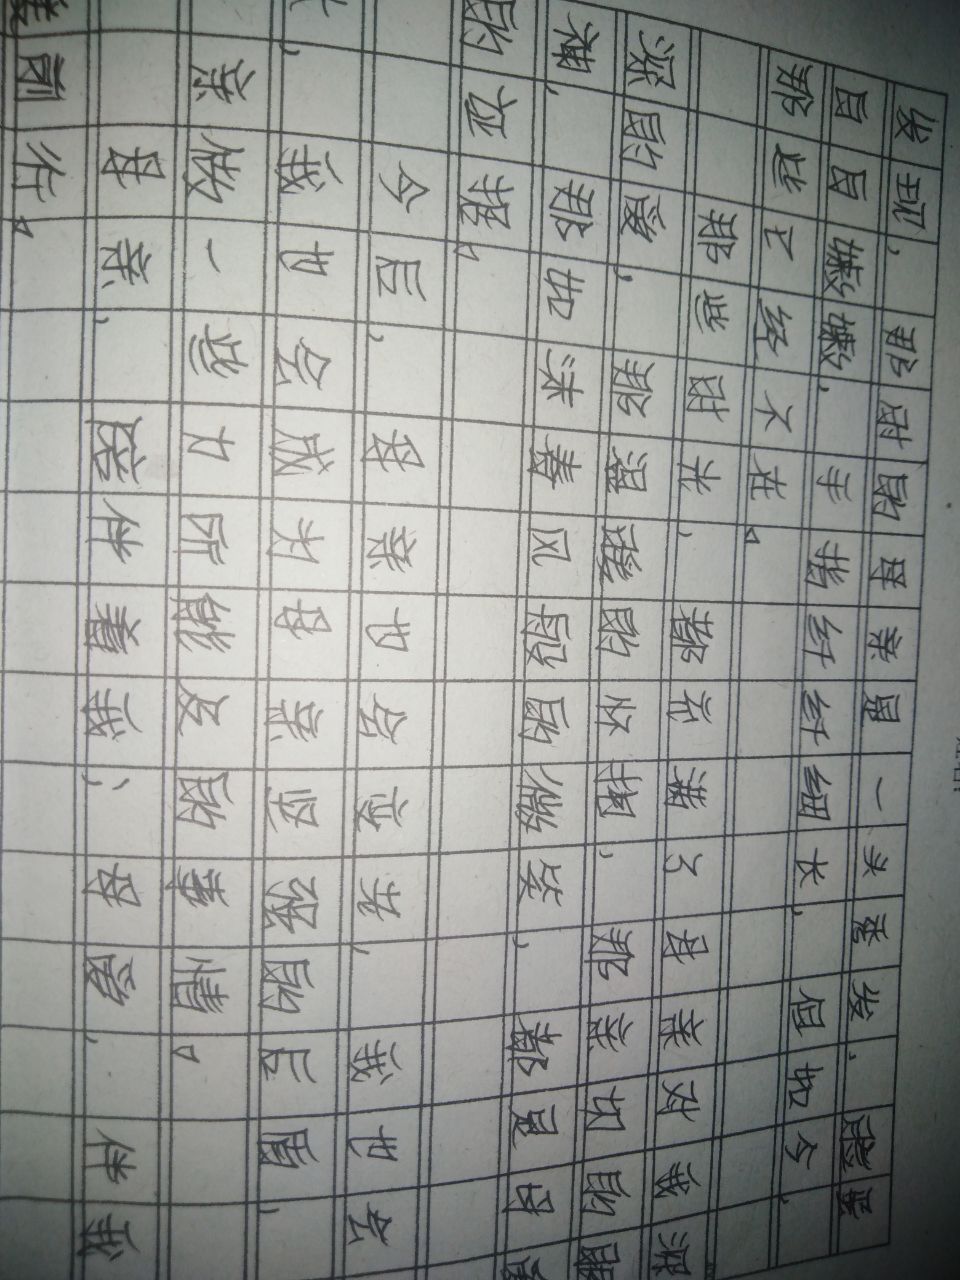 发现，那时的母亲留一头卷发，脸蛋
白白嫩嫩，手指纤纤细长，但如今，
那些已经不在。
那些时光，都充满了母亲对我深
深的爱，那温暖的怀抱，那亲切的眼
神，那如沐春风般的微笑，都是母爱
的证据。
今后，母亲也会变老，我也会
，我也会成为母亲坚强的后盾，
亲做一些力所能及的事情。
母亲，陪伴着我；母爱，伴我
前行。